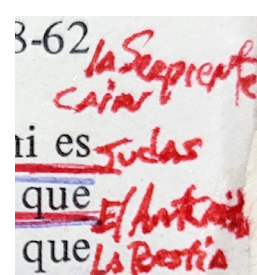 8-62 la Serpiente
Cain
ni es Judas
que El Anticristo
que La Bestia